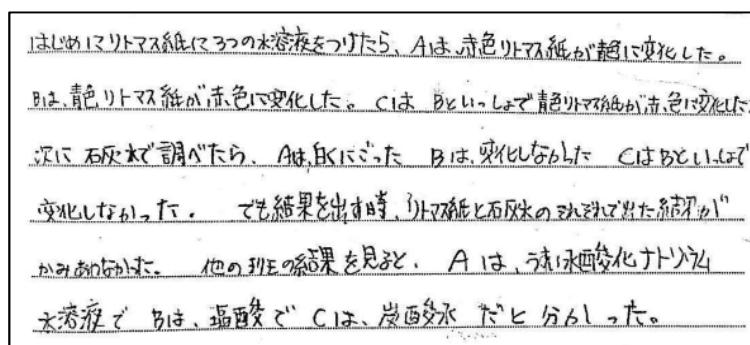 はじめにリトマス紙に3つの水溶液をつけたら、Aは、赤色リトマス紙が青色に変化した。
Bは、青色リトマス紙が赤色に変化した。CはBといっしょで青色リトマス紙が赤色に変化した
次に石灰水で調べたら、Aは、白くにごった Bは、変化しなかった CはBといっしょで
変化しなかった。 でも結果を出す時、リトマス紙と石灰水のそれぞれで出た結果が
かみあわなかった。 他の班の結果を見ると、Aは、うすい水酸化ナトリウム
水溶液で Bは、塩酸で Cは、炭酸水だと分かった。